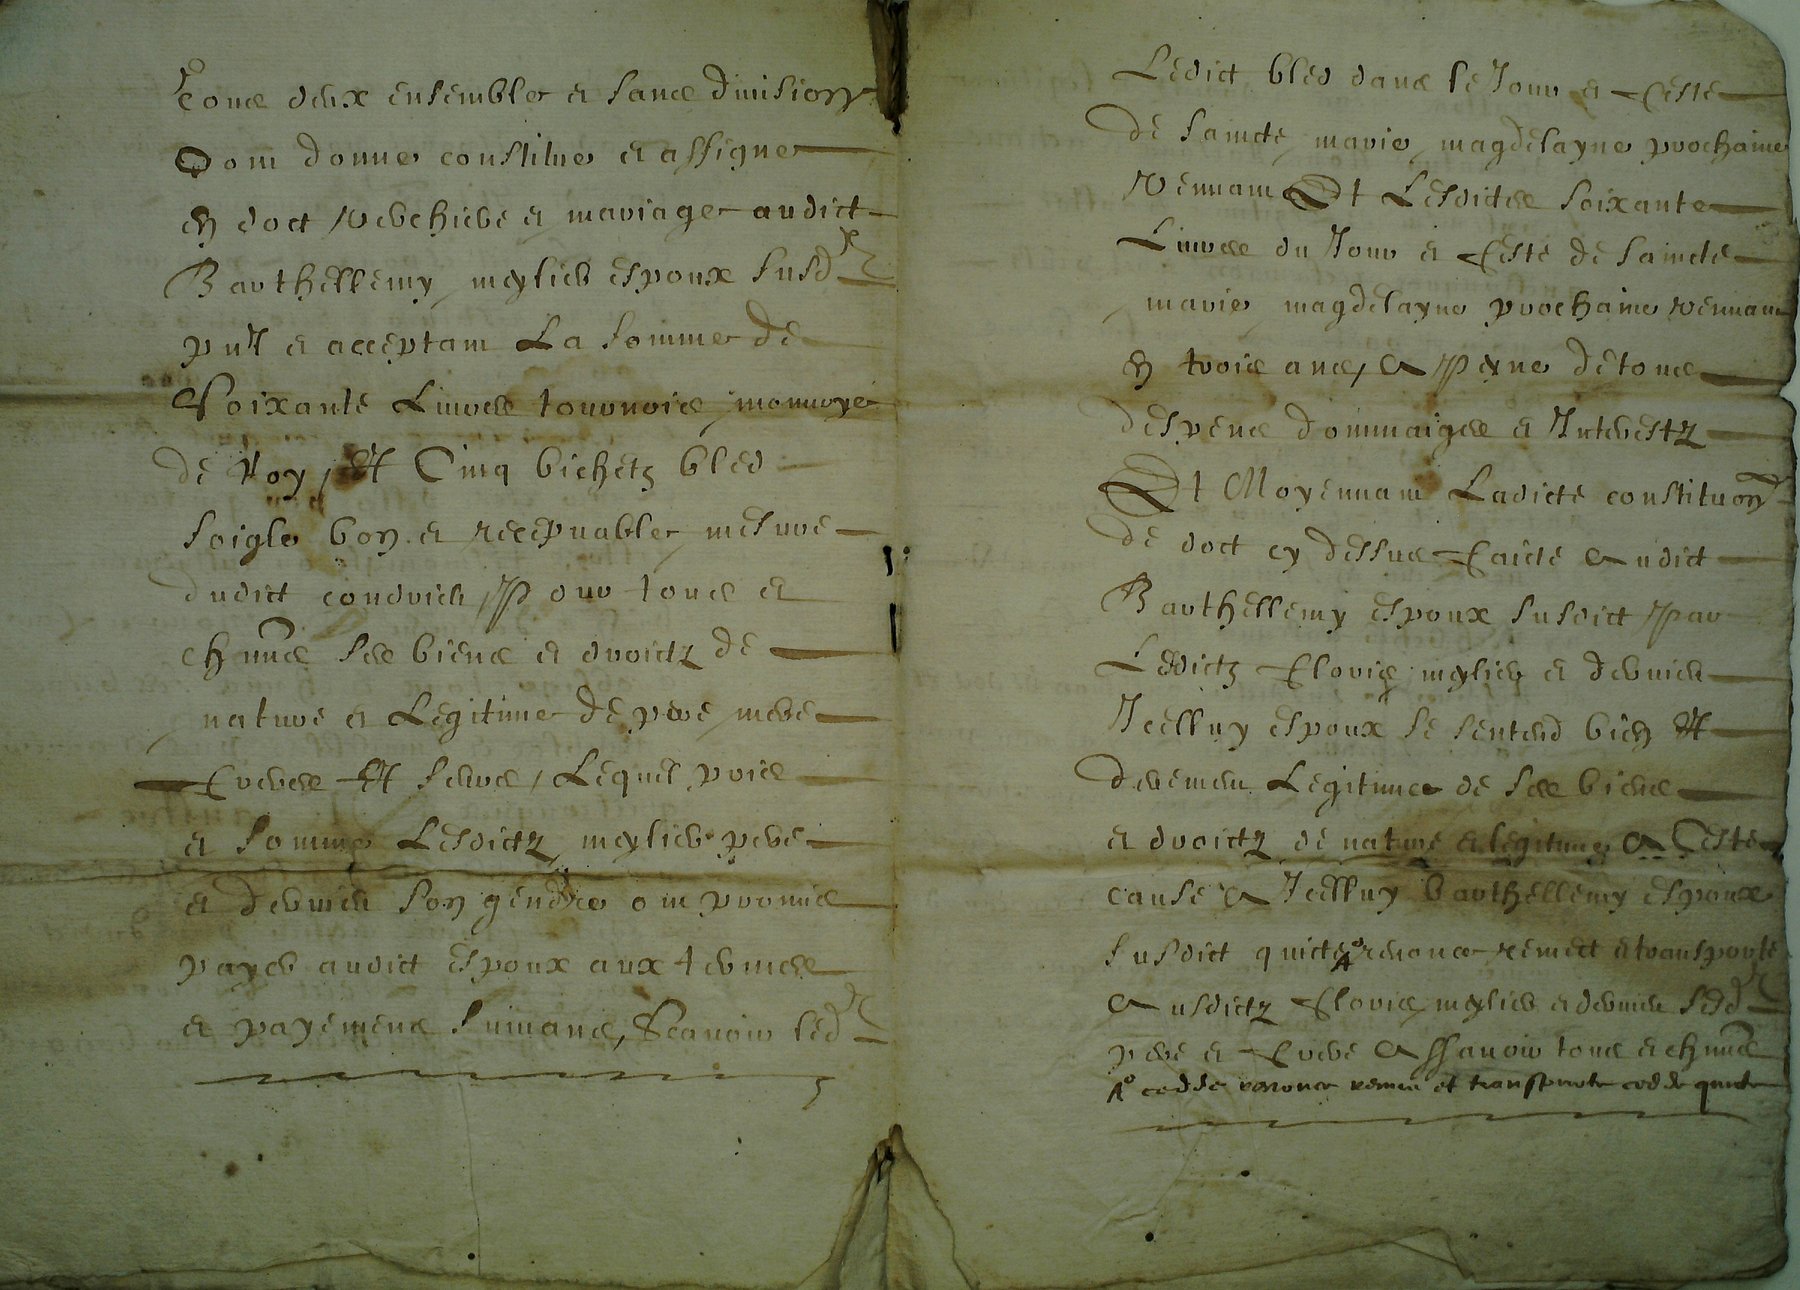 Tous deux ensemble et sans division
Dont donne constitue et assigne
en doct verchiere et mariage audict
Barthellemy meylier espoux susd
pnt et acceptant La somme de
Soixante Livres tournois monnoye
de Roy, Et Cinq bichetz bled
soigle bon et recepvable mesure
dudict condrieu Pour tous et
chnūs ses biens et droictz de
nature et Legitime de pere mere
freres Et seurs, Lequel prix
et somme Lesdictz meylier pere
et dernier son gendre ont promis
payer audict espoux aux termes
et payemens suivans, Scavoir led
Ledict bled dans le Jour et feste
de saincte marie magdelayne prochaine
venant Et Lesdites soixante
Livres du Jour et feste de saincte
marie magdelayne prochaine venant
en trois ans, A Peyne de tous
despens dommaiges et Interestz
Et Moyennant Ladicte constituon
de doct cy dessus faicte Audict
Barthellemy espoux susdict Par
Lesdictz floris meylier et dernier
Icelluy espoux se sentend bien Et
deuement Legitime de ses biens
et droictz de nature et legitime A Ceste
cause A Icelluy barthellemy espoux
susdict quicte renonce remect et transporte
Ausdictz floris meylier et dernier sesd
pere et frere Assavoir tous et chnūs
cedde renonce remect et transporte cedde quicte